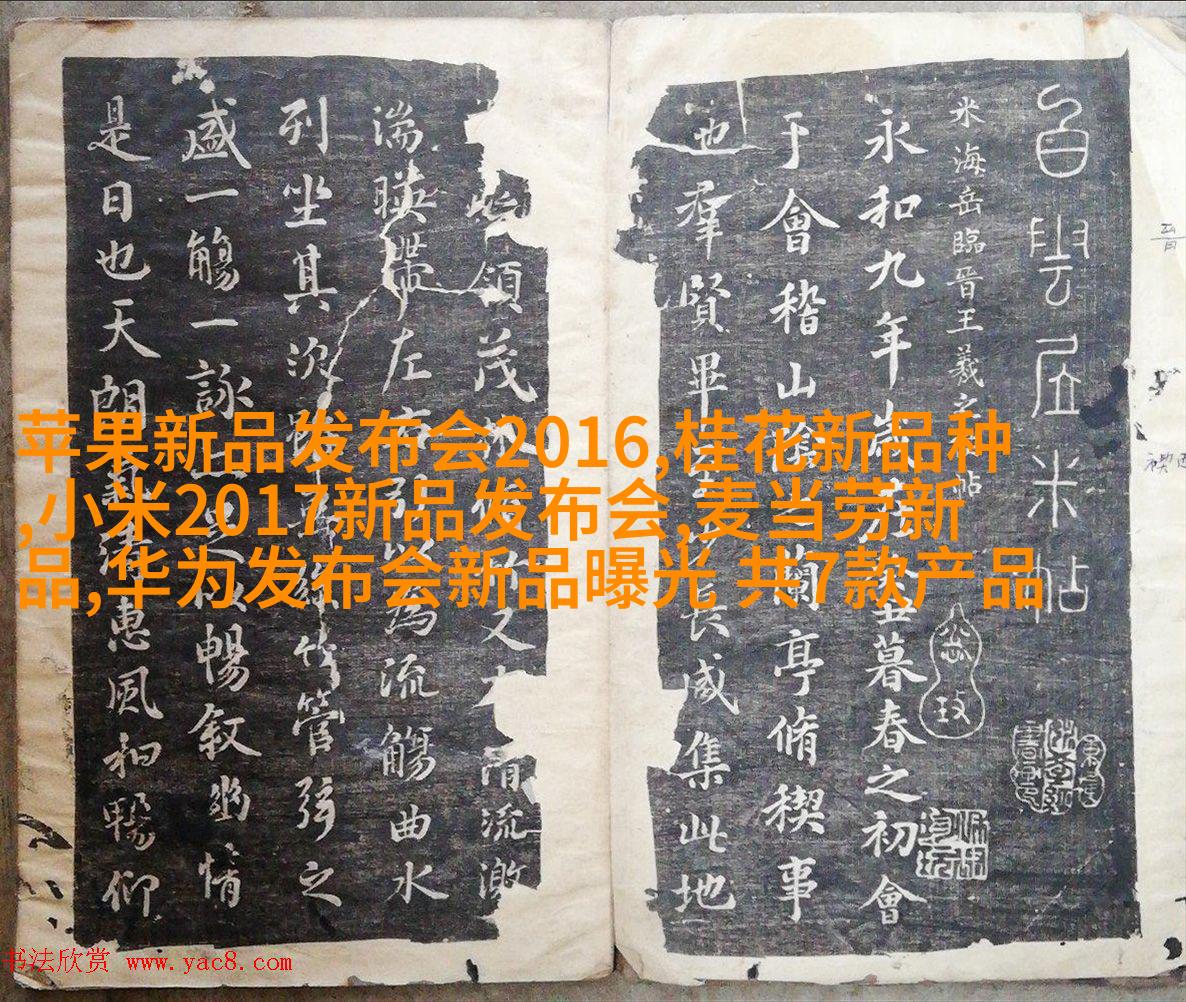 白雲居米帖
米海岳臨晉王羲之禊帖
永和九年歲在癸丑暮春之初會
于會稽山陰之蘭亭脩稧事
也羣賢畢至少長咸集此地
領茂林脩竹又有清流激
湍暎帶左右引以為流觴曲水
列坐其次雖無絲竹管弦之
盛一觴一詠亦足以暢叙幽情
是日也天朗氣清惠風和暢仰
苹果新品发布会2016,桂花新品种
,小米2017新品发布会,麦当劳新
品,华为发布会新品曝光 共7款产品
书法欣赏 www.yac8.com